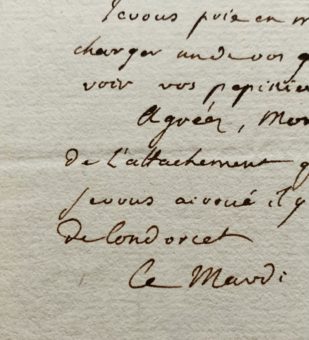 Je vous prie en m
charger un de vos g
voir vos pepinier
Agréez, Mon
de l'attachement q
je vous ai voué il y
de Condorcet
Ce Mardi